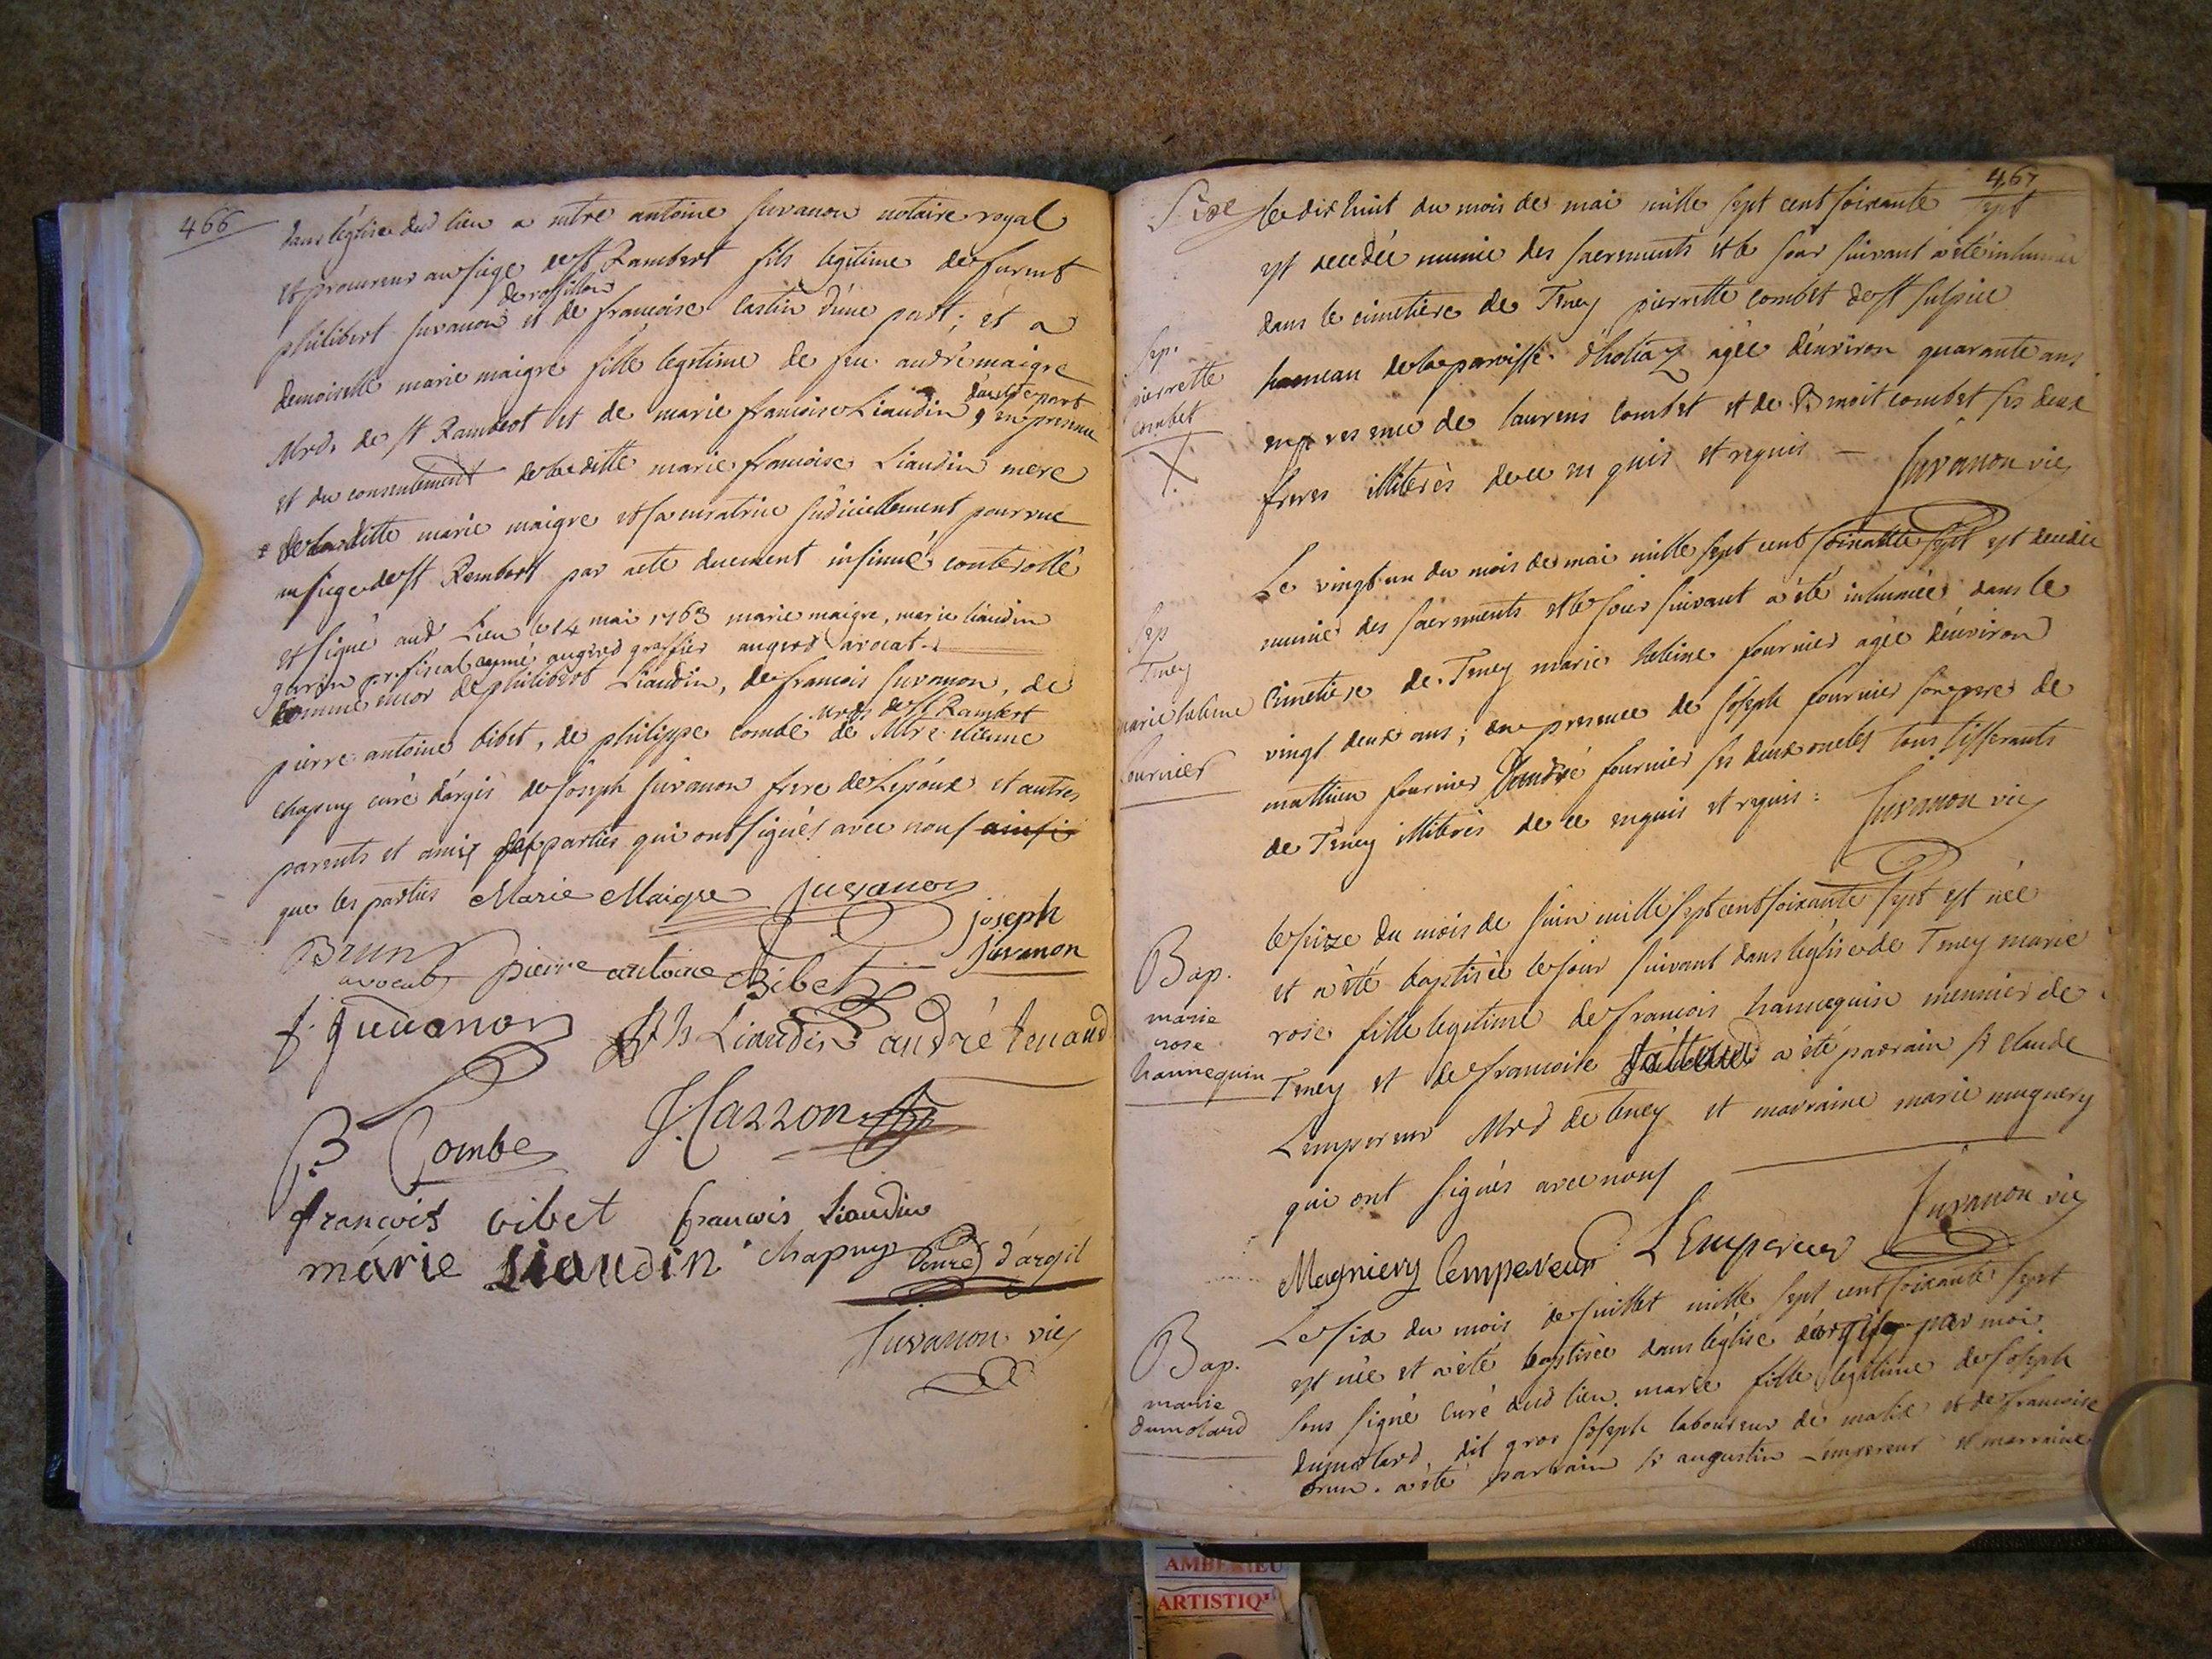 466
dans l'église dud lieu a mtre antoine Juvanon notaire royal
et procureur au siege de st Rambert fils legitime de furent
de rossillon
philibert Juvanon et de francoise castin d'une part; et a
demoiselle marie maigre fille legitime de feu andré maigre
d'autre part
Mrd. de st Rambert et de marie francoise Liaudin, en presence
et du consentement de laditte marie francoise Liaudin mere
de laditte marie maigre et sa curatrice judiciellement pourvue
au siege de st Rambert par acte duement insinué contérollé
et signé aud Lieu le 14 mai 1763 marie maigre, marie liaudin
garin pr fiscal aymé augerd greffier augerd avocat.
comme encor de philibert Liaudin, de francois Juvanon, de
mrds de st Rambert
pierre antoine bibet, de philippe combe de Mtre etienne
chapuy curé d'argis de Joseph Juvanon frere de Lepoux et autres
parents et amis des parties qui ont signés avec nous ainsi
que les parties Marie Maigre Juvanon
joseph
Juvanon
Brun
avocat pierre antoine Bibet
f. Juvanon Ph Liaudin andré tenand
P. Combe J. Cazzon
francois bibet francois Liaudin
marie Liaudin chapuy Curé d'argil
Juvanon vic
467
Le dix huit du mois de mai mille sept cent soixante sept
est decedée munie des sacrements et le jour suivant a été inhumée
dans le cimetiere de Teney pierrette combet de st sulpice
hameau de la paroisse d'hotiaz agée d'environ quarante ans
en presence de laurens Combet et de Benoit combet ses deux
freres illiterés de ce enquis et requis – Juvanon vic
Sep.
pierrette
combet
X
Le vingt un du mois de mai mille sept cent soixante sept est decedée
munie des sacrements et le jour suivant a été inhumée dans le
Cimetiere de Teney marie heleine fournier agée d'environ
vingt deux ans; en presence de Joseph fournier son pere de
mathieu fournier d'andré fournier ses deux oncles tous tisserants
de Teney illiterés de ce enquis et requis: Juvanon vic
Sep
Teney
marie helene
fournier
le seize du mois de Juin mille sept cent soixante sept est née
et a été baptisée le jour suivant dans l'église de Teney marie
rose fille legitime de francois hannequin meunier de
Teney et de francoise a été parrain sr claude
Lempereur Mrd de Teney et marraine marie magnery
qui ont signés avec nous
Juvanon vic
Magniery lempereur LEmpereur
Bap.
marie
rose
hannequin
Le six du mois de Juillet mille sept cent soixante sept
est née et a été baptisée dans l'église par moi
sous signé curé dud lieu marie fille legitime de Joseph
dumolard dit gros Joseph laboureur de et de francoise
brun. a été parrain sr augustin Lempereur et marraine
Bap.
marie
dumolard
ARTISTIQ